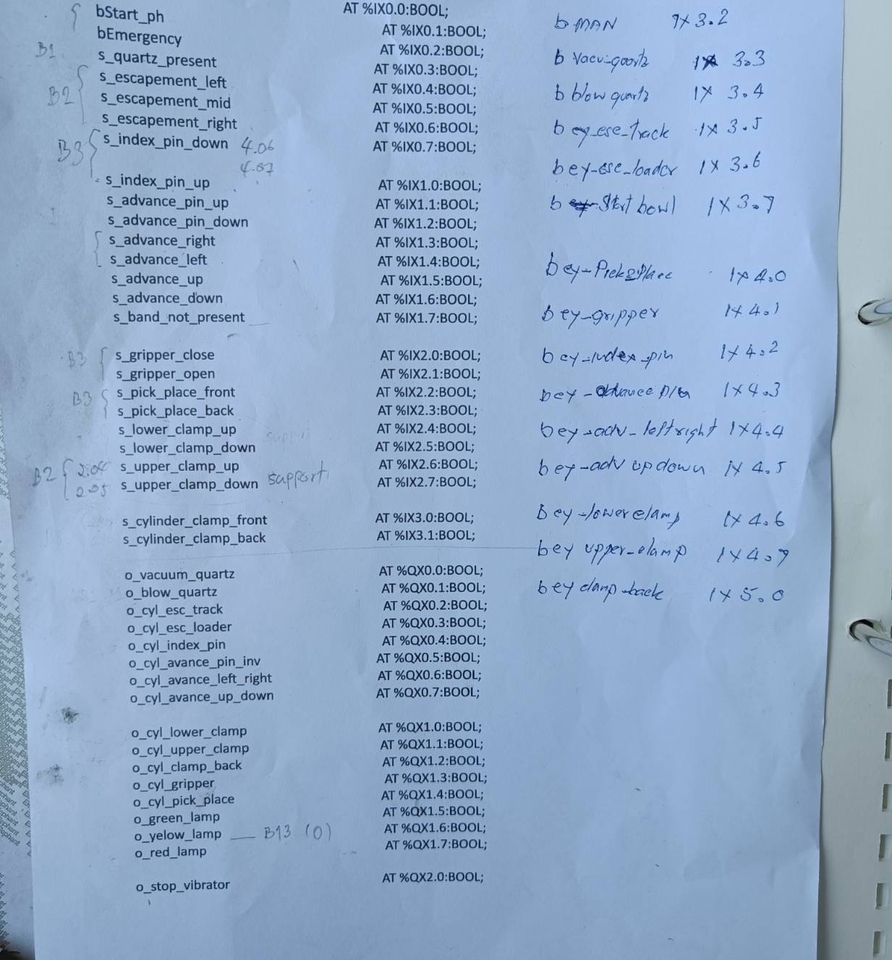 bStart_ph AT %IX0.0:BOOL;
bEmergency AT %IX0.1:BOOL;
B1 s_quartz_present AT %IX0.2:BOOL;
s_escapement_left AT %IX0.3:BOOL;
B2 s_escapement_mid AT %IX0.4:BOOL;
s_escapement_right AT %IX0.5:BOOL;
B3 s_index_pin_down 4.06 AT %IX0.6:BOOL;
4.07 AT %IX0.7:BOOL;
s_index_pin_up AT %IX1.0:BOOL;
s_advance_pin_up AT %IX1.1:BOOL;
s_advance_pin_down AT %IX1.2:BOOL;
s_advance_right AT %IX1.3:BOOL;
s_advance_left AT %IX1.4:BOOL;
s_advance_up AT %IX1.5:BOOL;
s_advance_down AT %IX1.6:BOOL;
s_band_not_present AT %IX1.7:BOOL;
B3 s_gripper_close AT %IX2.0:BOOL;
s_gripper_open AT %IX2.1:BOOL;
B3 s_pick_place_front AT %IX2.2:BOOL;
s_pick_place_back AT %IX2.3:BOOL;
s_lower_clamp_up AT %IX2.4:BOOL;
s_lower_clamp_down AT %IX2.5:BOOL;
B2 2.04 s_upper_clamp_up AT %IX2.6:BOOL;
2.05 s_upper_clamp_down support AT %IX2.7:BOOL;
s_cylinder_clamp_front AT %IX3.0:BOOL;
s_cylinder_clamp_back AT %IX3.1:BOOL;
o_vacuum_quartz AT %QX0.0:BOOL;
o_blow_quartz AT %QX0.1:BOOL;
o_cyl_esc_track AT %QX0.2:BOOL;
o_cyl_esc_loader AT %QX0.3:BOOL;
o_cyl_index_pin AT %QX0.4:BOOL;
o_cyl_avance_pin_inv AT %QX0.5:BOOL;
o_cyl_avance_left_right AT %QX0.6:BOOL;
o_cyl_avance_up_down AT %QX0.7:BOOL;
o_cyl_lower_clamp AT %QX1.0:BOOL;
o_cyl_upper_clamp AT %QX1.1:BOOL;
o_cyl_clamp_back AT %QX1.2:BOOL;
o_cyl_gripper AT %QX1.3:BOOL;
o_cyl_pick_place AT %QX1.4:BOOL;
o_green_lamp AT %QX1.5:BOOL;
o_yelow_lamp B13 (0) AT %QX1.6:BOOL;
o_red_lamp AT %QX1.7:BOOL;
o_stop_vibrator AT %QX2.0:BOOL;
b MAN 1x 3.2
b vacu-quartz 1x 3.3
b blow quartz 1x 3.4
b cy_esc_track 1x 3.5
b cy_esc_loader 1x 3.6
b Start bowl 1x 3.7
b cy-Pick&Place 1x 4.0
b cy-gripper 1x 4.1
b cy-index-pin 1x 4.2
b cy-advance pin 1x 4.3
b cy-adv-left right 1x 4.4
b cy-adv up down 1x 4.5
b cy-lower clamp 1x 4.6
b cy upper-clamp 1x 4.7
b cy clamp-back 1x 5.0